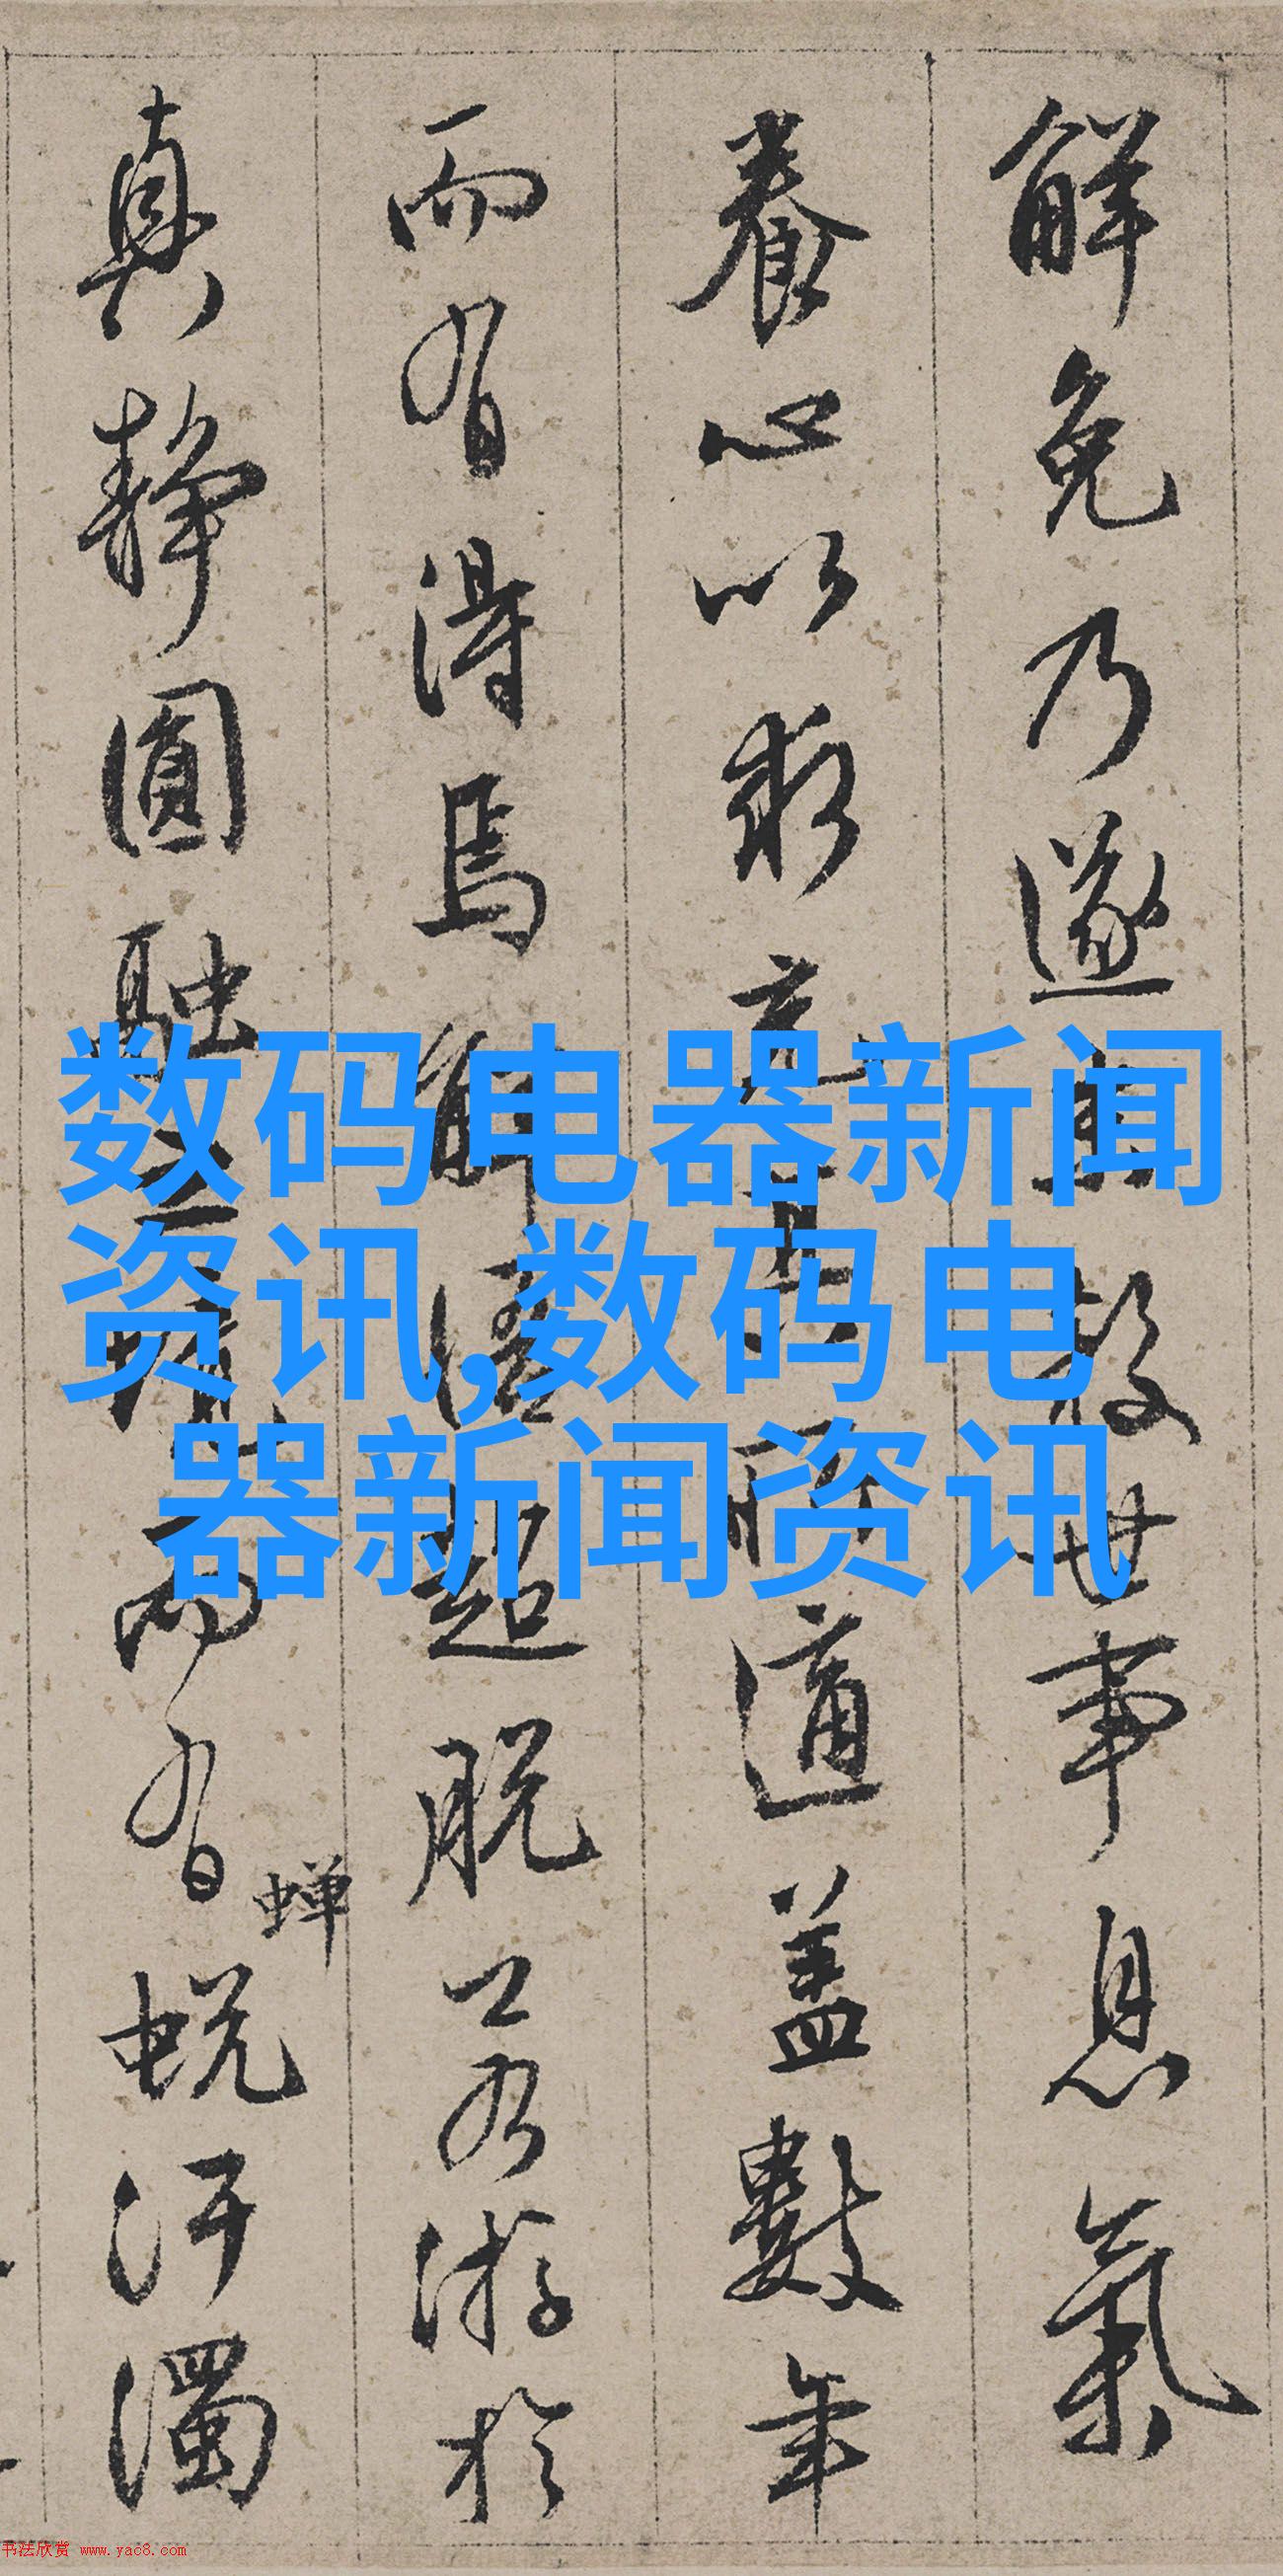 数码电器新闻
资讯,数码电
器新闻资讯
解免乃遂世事息氣
養心以求適蓋數年
而有得焉解悟超脫游於
真靜圓融而有蟬蛻汙濁
书法欣赏 www.yac8.com